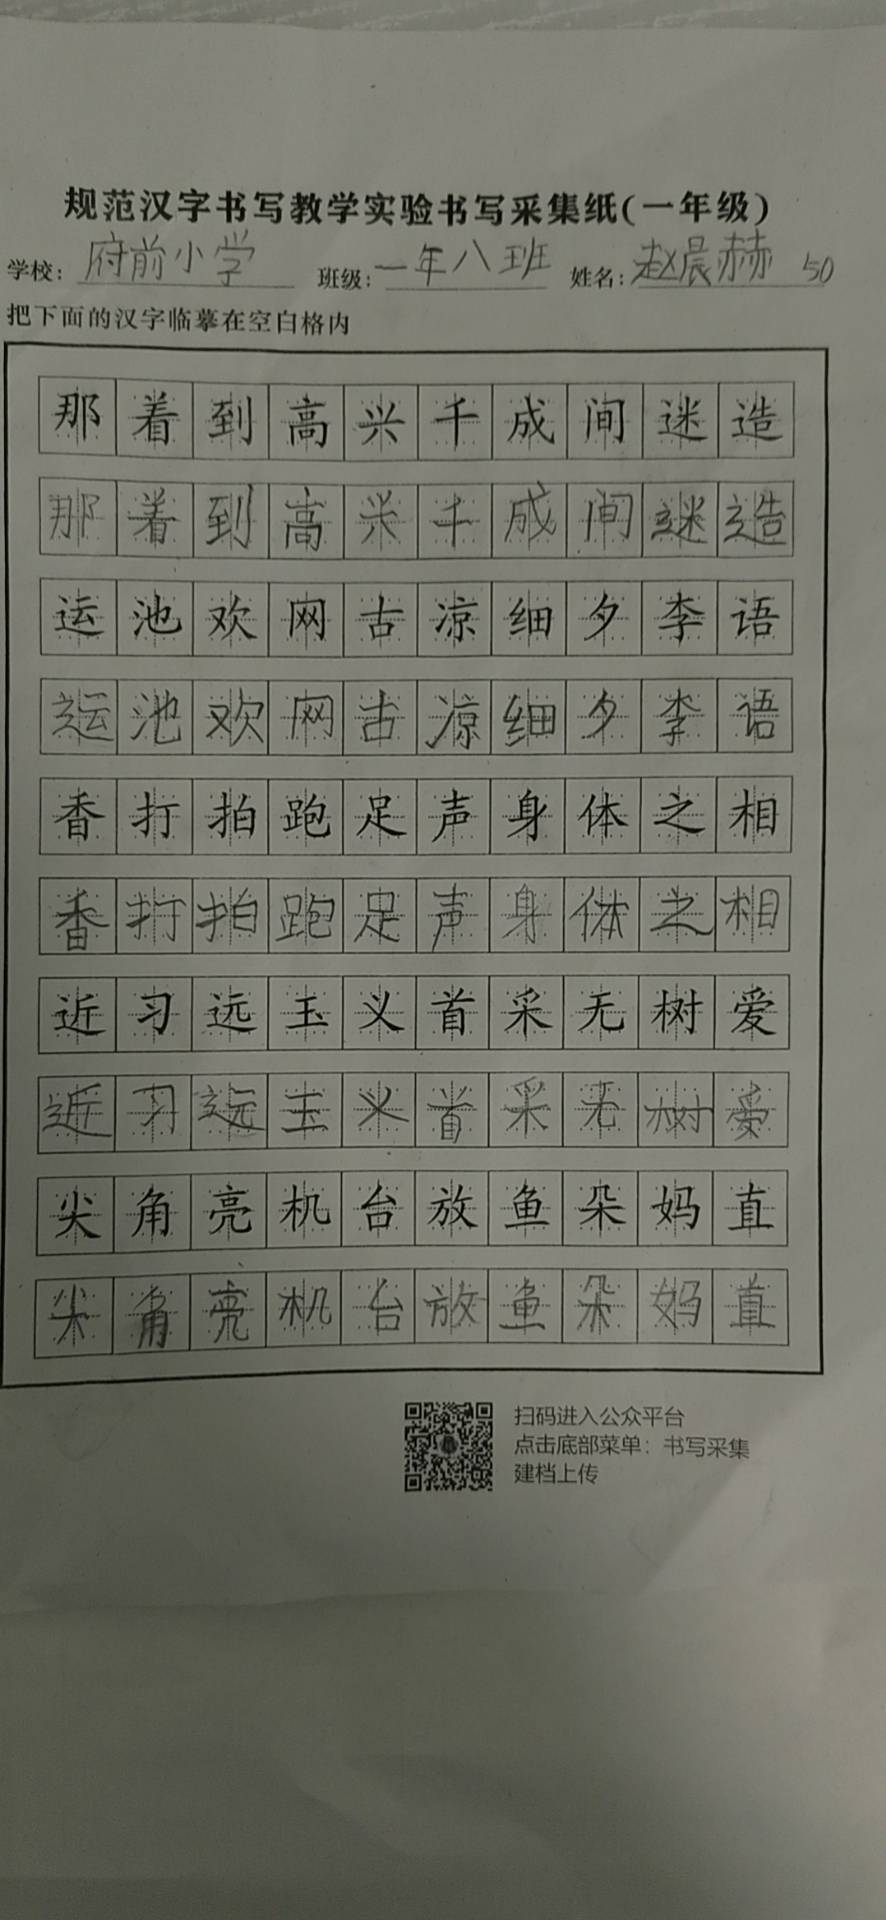 规范汉字书写教学实验书写采集纸(一年级)
学校：府前小学 班级：一年八班 姓名：赵晨赫 50
把下面的汉字临摹在空白格内
那着到高兴千成间迷造
那着到高兴千成间迷造
运池欢网古凉细夕李语
运池欢网古凉细夕李语
香打拍跑足声身体之相
香打拍跑足声身体之相
近习远玉义首采无树爱
近习远玉义首采无树爱
尖角亮机台放鱼朵妈直
尖角亮机台放鱼朵妈直
扫码进入公众平台
点击底部菜单：书写采集
建档上传